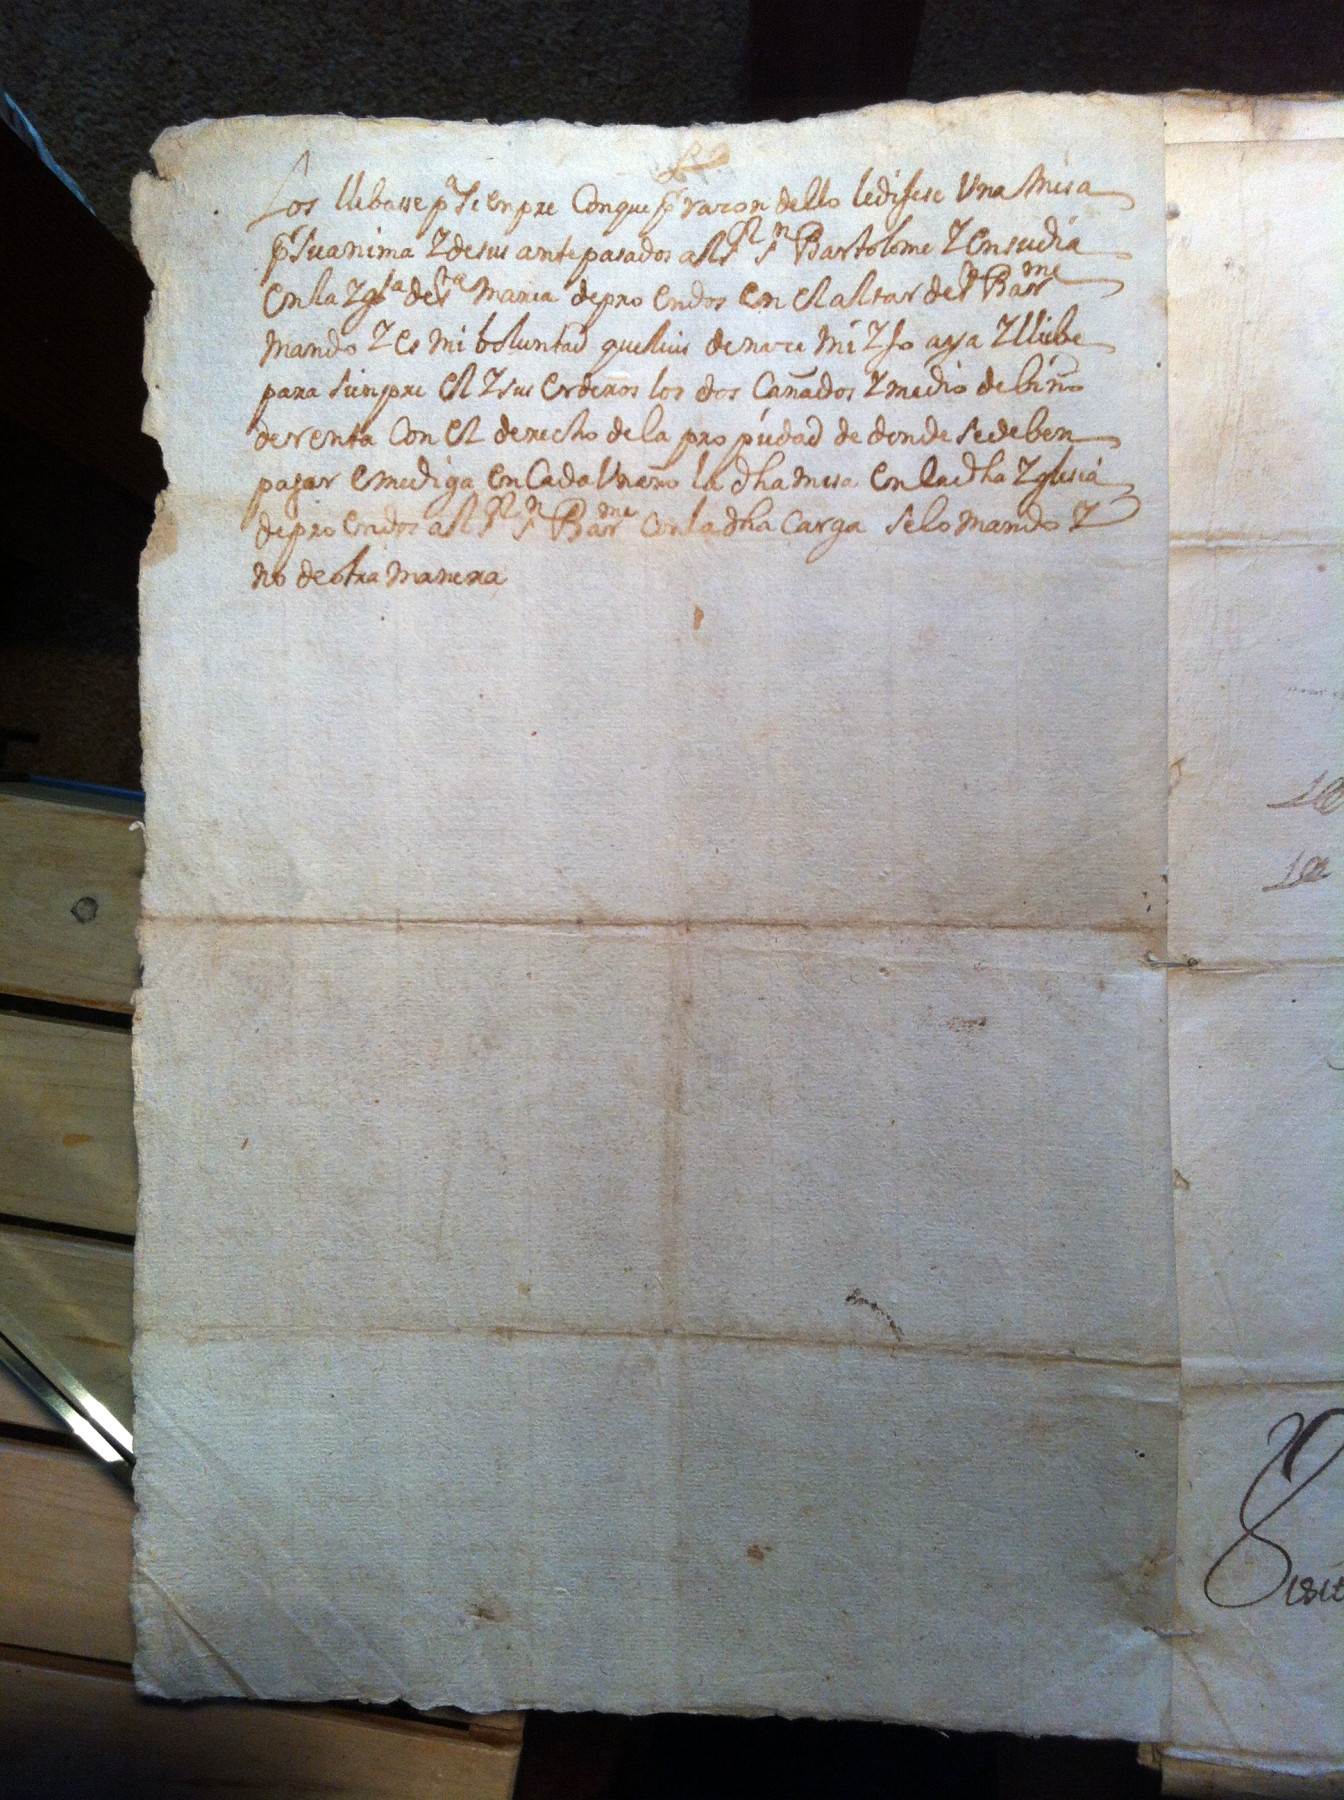 Los llebasse pa sienpre Conque pr raçon dello le dijese Una Misa
pr Su anima Y de sus antepasados al Sr Sn Bartolome Y en su dia
en la Yglª de Sta Maria de proendos en el altar de Sn Barme
Mando Y es mi boluntad que luis de nare Mi Yjo aya Y llebe
para sienpre el Y sus erderos los dos Cañados Y medio de biño
de renta Con el derecho de la propiedad de donde se deben
pagar e me diga en Cada Un año la dha misa en la dha Yglesia
de proendos al Sr Sn Barme Con la dha Carga se lo mando Y
no de otra manera